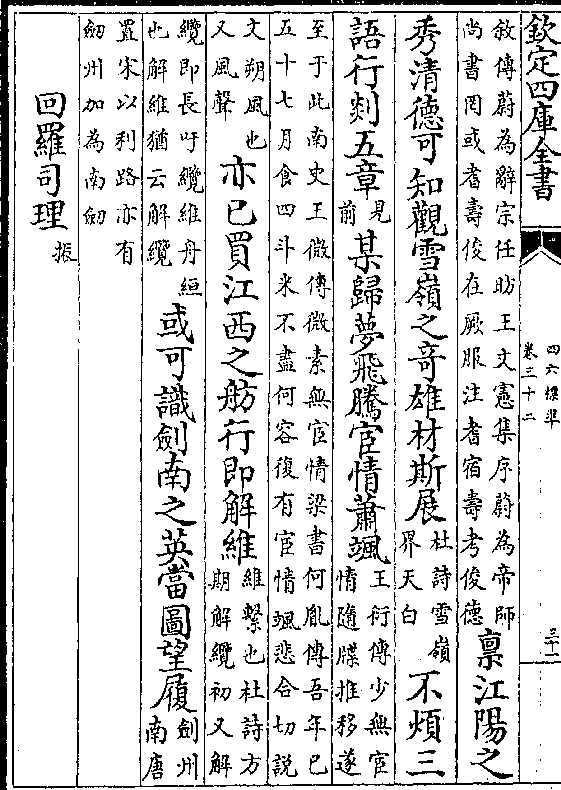 欽定四庫全書
四六標準
卷三十二
三十一
敘傳蔚為辭宗任昉王文憲集序蔚為帝師
尚書罔或耆壽俊在厥服注耆宿壽考俊德
稟江陽之
秀清德可知觀雪嶺之竒雄材斯展
杜詩雪嶺
界天白
不煩三
語行剡五章
見
前
某歸夢飛騰宦情蕭颯
王衍傳少無宦
情隨牒推移遂
至于此南史王微傳微素無宦情梁書何胤傳吾年已
五十七月食四斗米不盡何容復有宦情颯悲合切說
文朔風也
又風聲
亦已買江西之舫行即解維
維繫也杜詩方
期解纜初又解
纜即長吁纜維舟絙
也解維猶云解纜
或可識劍南之英當圖望履
劍州
南唐
置宋以利路亦有
劒州加為南劒
回羅司理
振